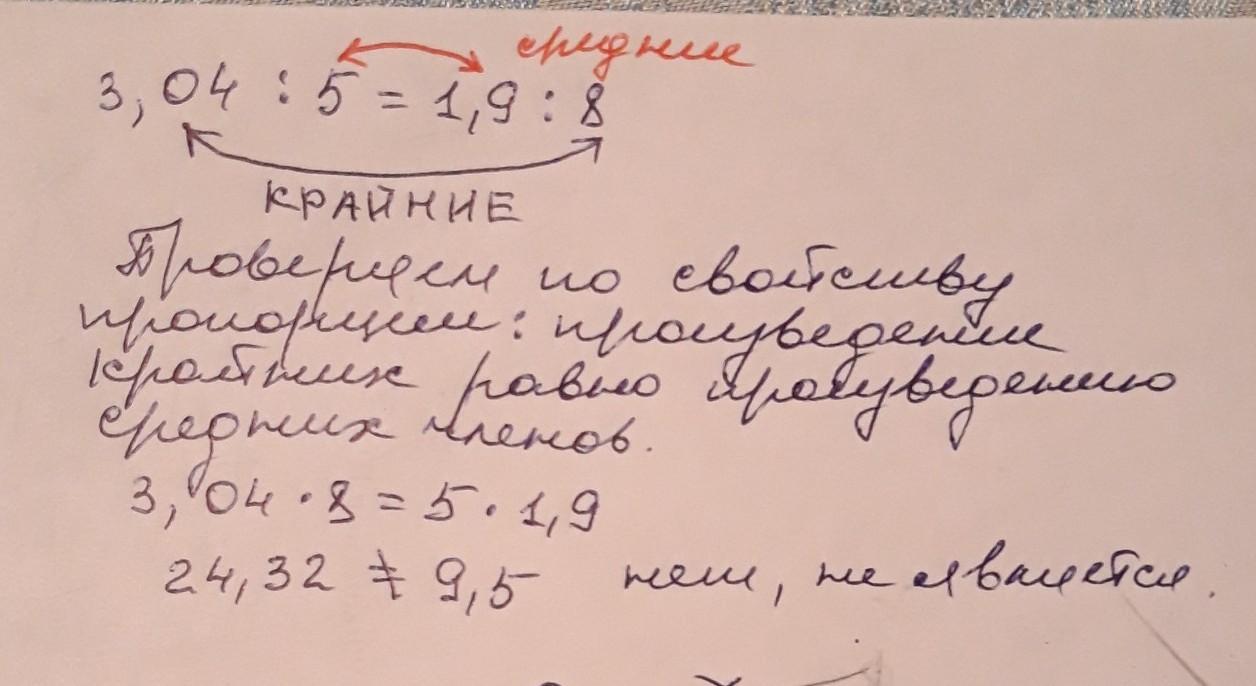 средние
3,04 : 5 = 1,9 : 8
КРАЙНИЕ
Проверяем по свойству
пропорции: произведение
крайних равно произведению
средних членов.
3,04 · 8 = 5 · 1,9
24,32 ≠ 9,5 нет, не является.